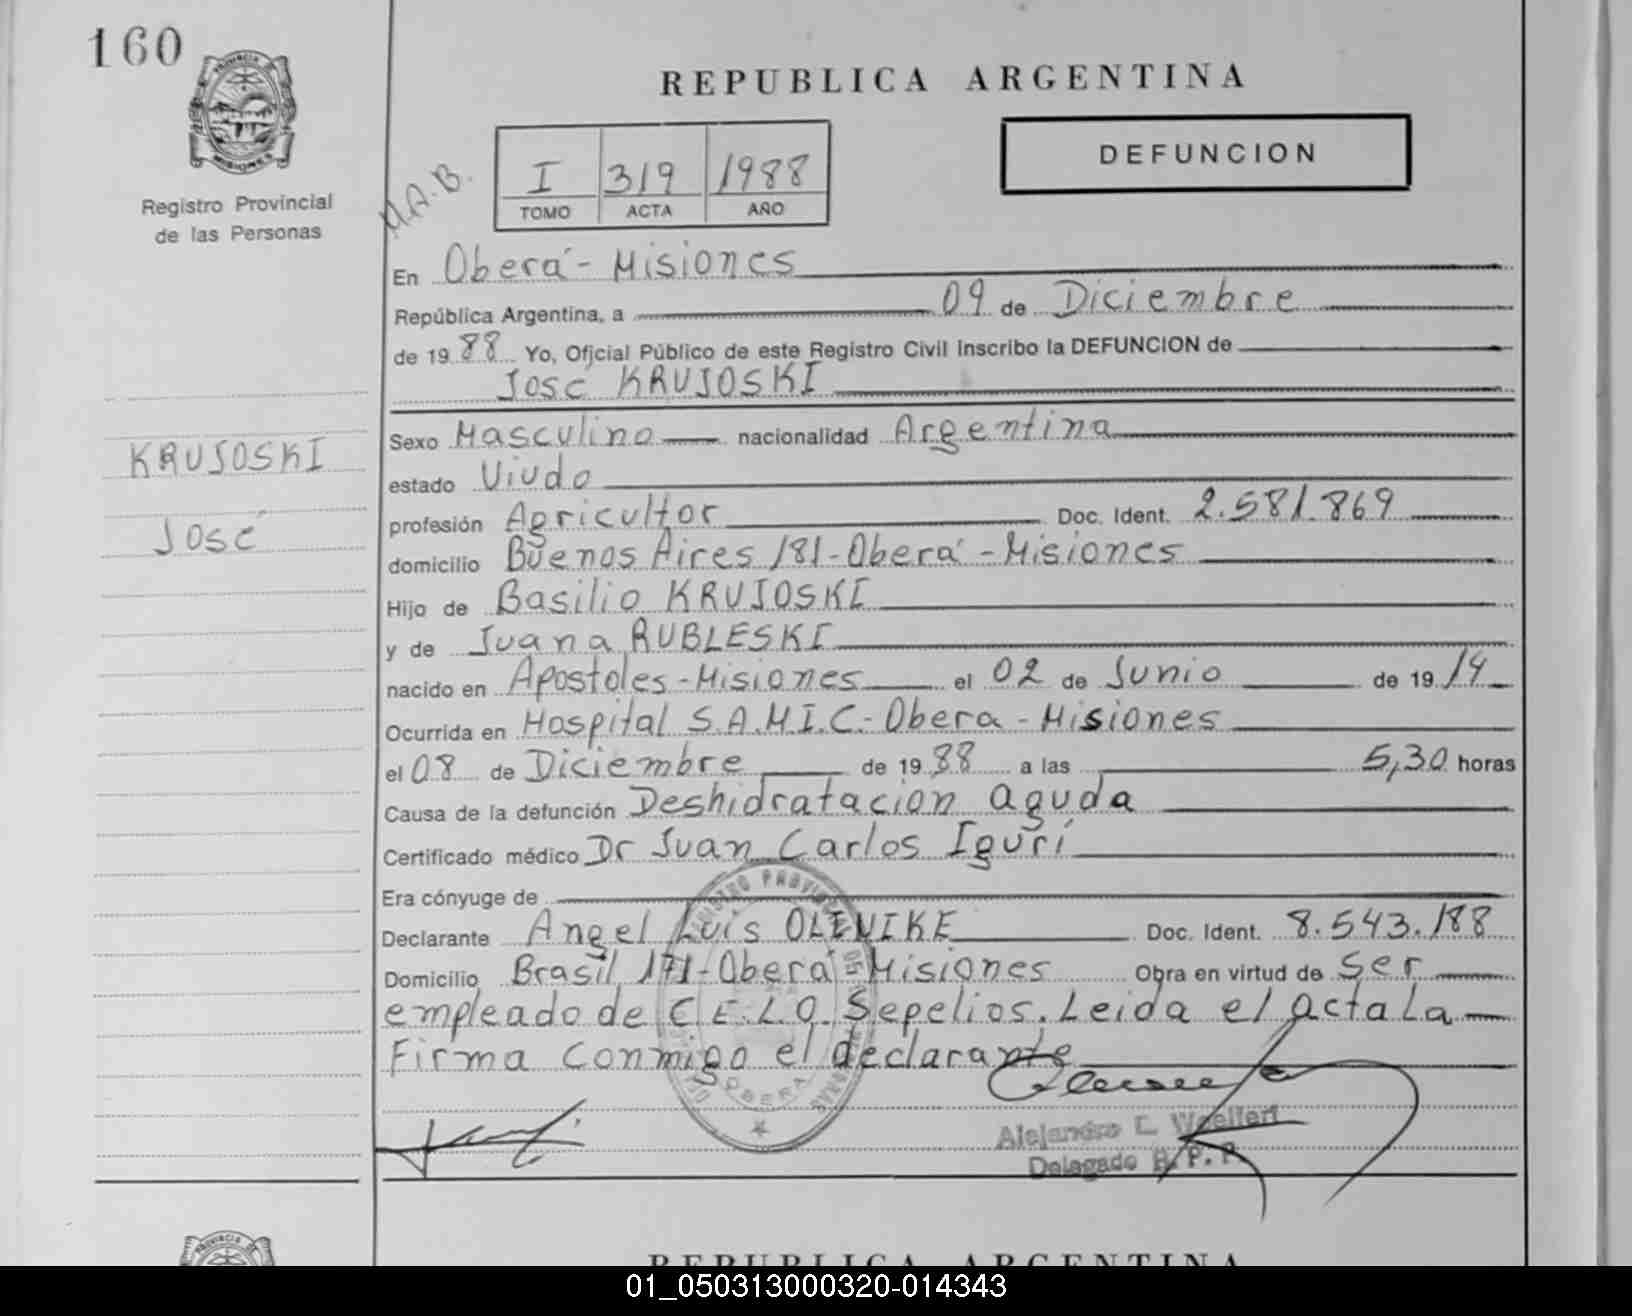 160
PROVINCIA DE
MISIONES
Registro Provincial
de las Personas
REPUBLICA ARGENTINA
DEFUNCION
M.A.B.
I 319 1988
TOMO ACTA AÑO
En Oberá - Misiones
República Argentina, a 09 de Diciembre
de 19 88 Yo, Oficial Público de este Registro Civil Inscribo la DEFUNCION de
José KRUJOSKI
KRUJOSKI
José
Sexo Masculino nacionalidad Argentina
estado Viudo
profesión Agricultor Doc. Ident. 2.581.869
domicilio Buenos Aires 181-Oberá - Misiones
Hijo de Basilio KRUJOSKI
y de Juana RUBLESKI
nacido en Apostoles - Misiones el 02 de Junio de 19 14
Ocurrida en Hospital S.A.M.I.C.-Obera - Misiones
el 08 de Diciembre de 19 88 a las 5,30 horas
Causa de la defunción Deshidratacion aguda
Certificado médico Dr Juan Carlos Igurí
Era cónyuge de
Declarante Angel Luis OLINIKE Doc. Ident. 8.543.188
Domicilio Brasil 171-Oberá - Misiones Obra en virtud de ser
empleado de C.E.L.O. Sepelios. Leida el acta La
Firma conmigo el declarante
OBERA
Alejandro E. Woelfert
Delegado R.P.P.
PROVINCIA DE
REPUBLICA ARGENTINA
01_050313000320-014343